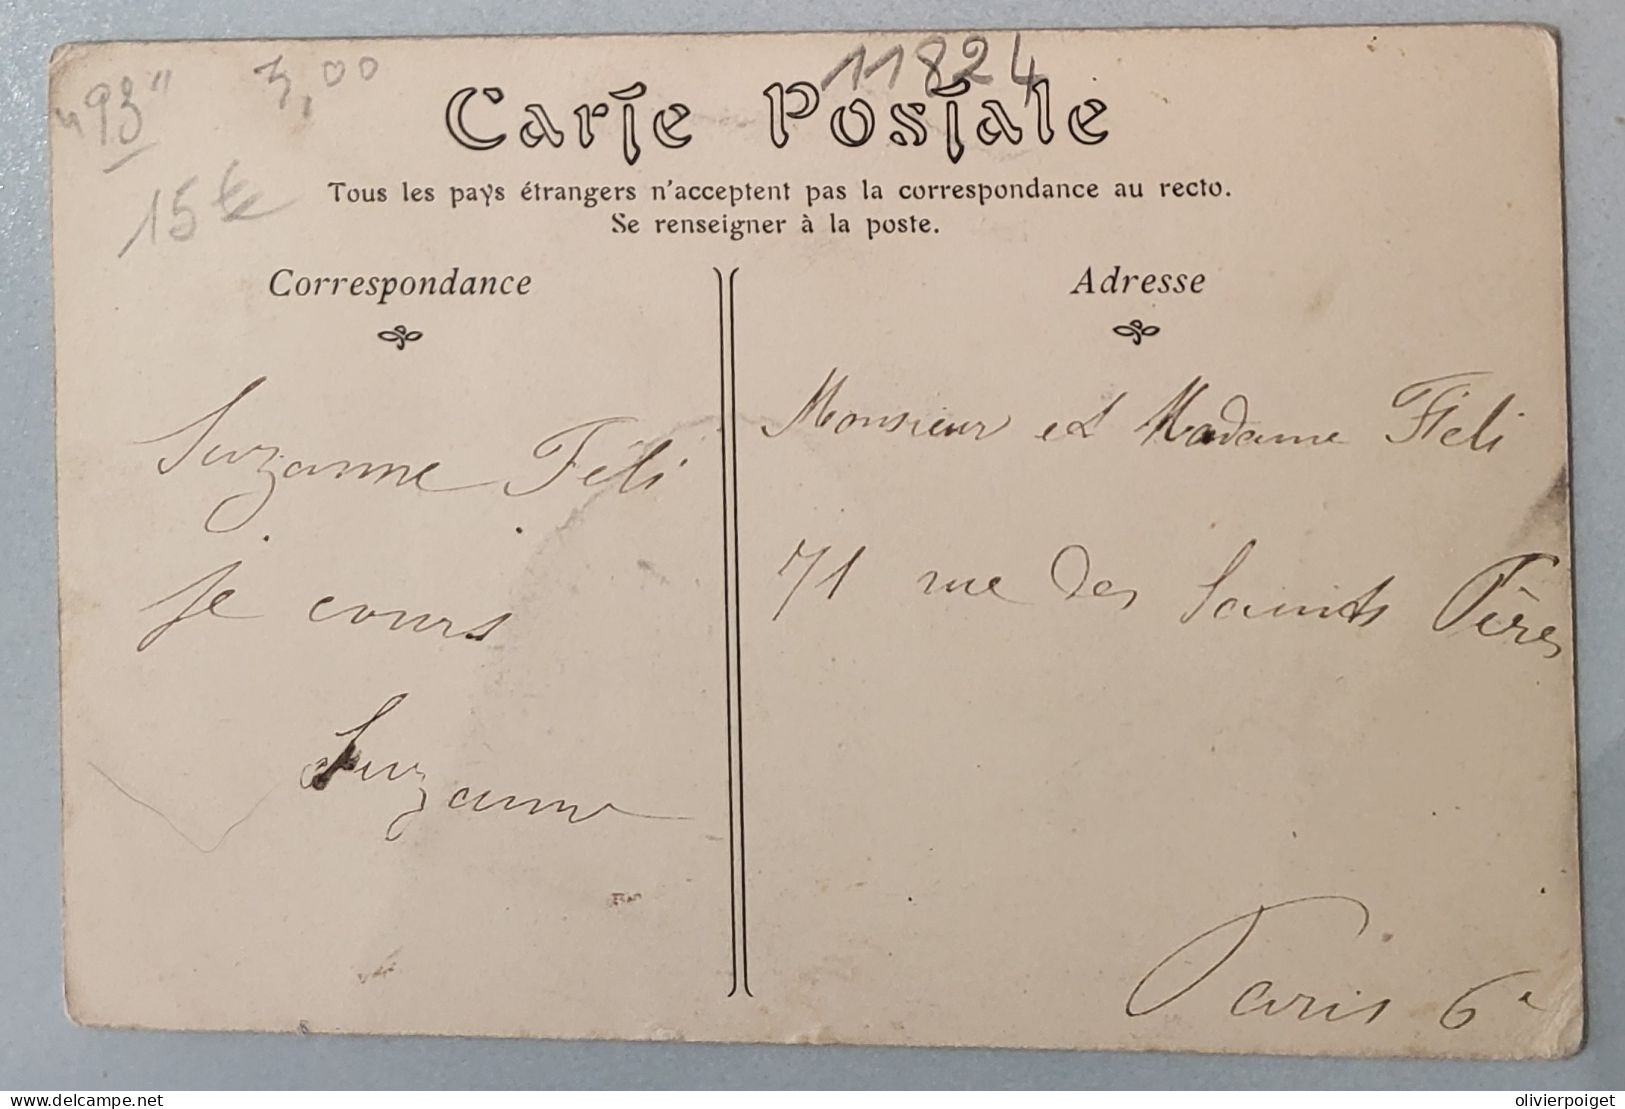 "93"
3,00
11824
15€
Carte Postale
Tous les pays étrangers n'acceptent pas la correspondance au recto.
Se renseigner à la poste.
Correspondance
Suzanne Féli
je cours
Suzanne
Adresse
Monsieur et Madame Féli
71 rue des Saints Pères
Paris 6e
delcampe.net
olivierpoiget